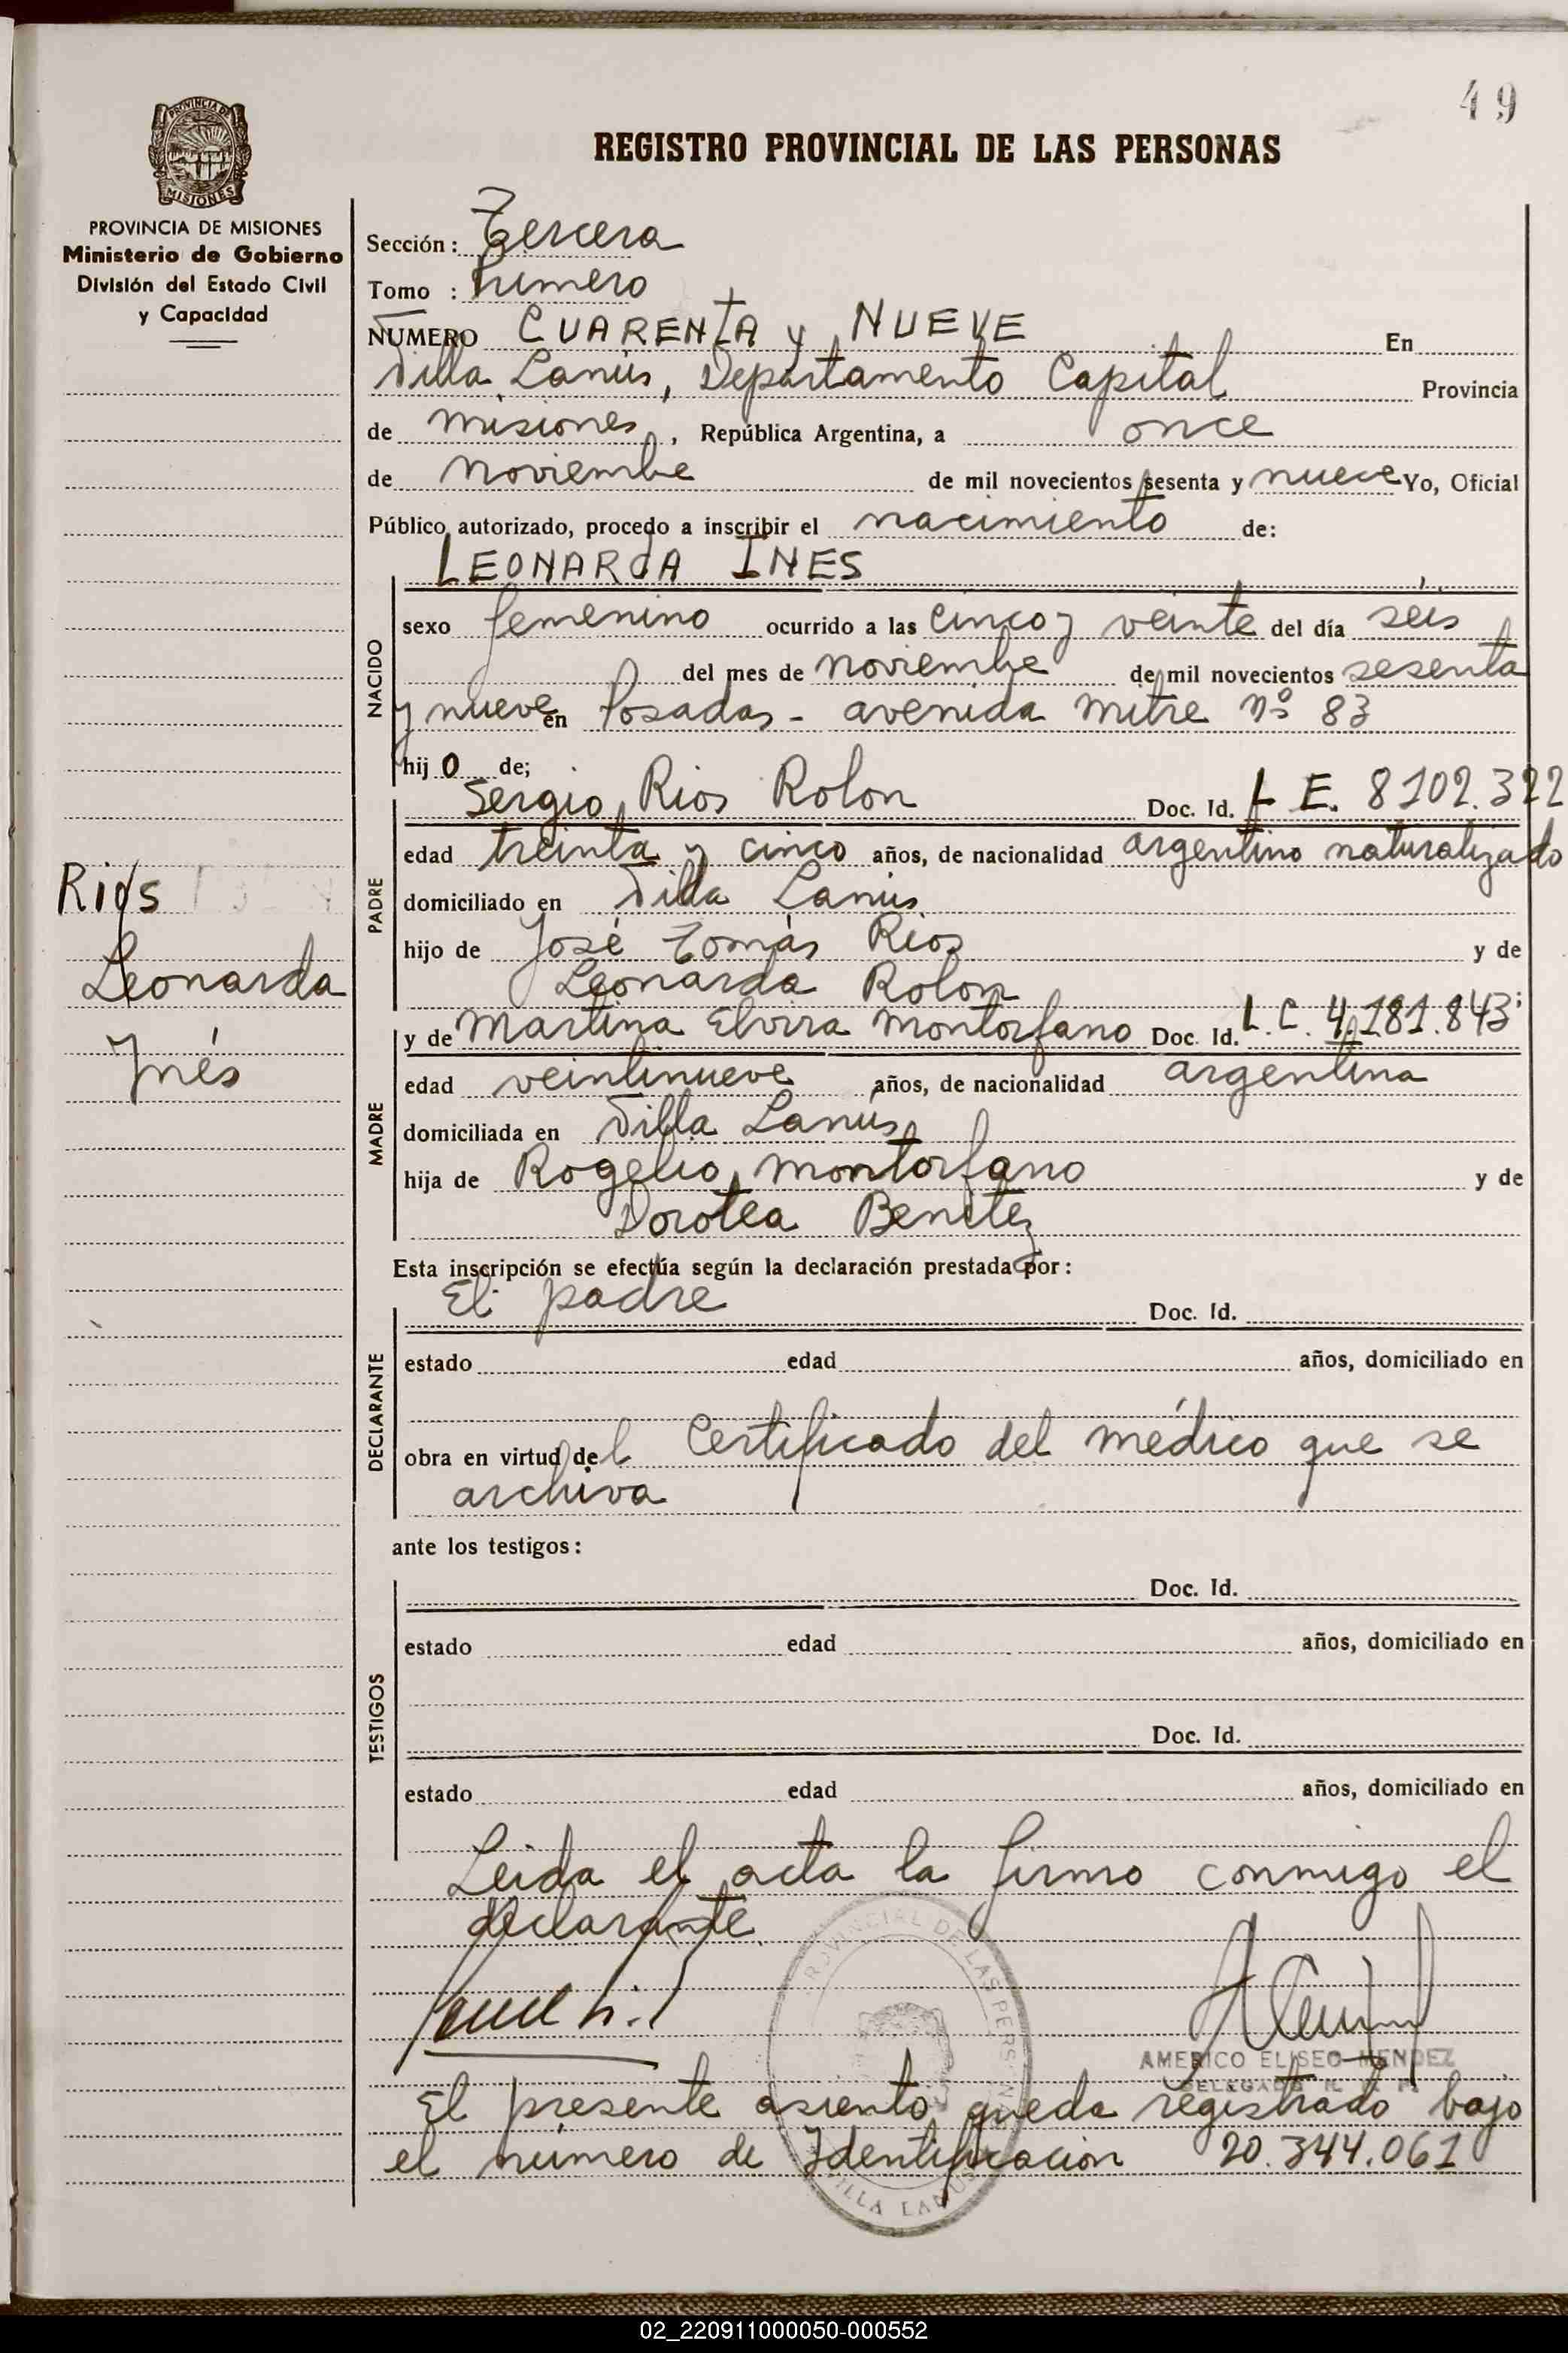 49
REGISTRO PROVINCIAL DE LAS PERSONAS
PROVINCIA DE
MISIONES
PROVINCIA DE MISIONES
Ministerio de Gobierno
División del Estado Civil
y Capacidad
Sección: Tercera
Tomo : Primero
NUMERO CUARENTA y NUEVE En
Villa Lanús, Departamento Capital Provincia
de Misiones, República Argentina, a once
de noviembre de mil novecientos sesenta y nueve Yo, Oficial
Público autorizado, procedo a inscribir el nacimiento de:
LEONARdA INES
NACIDO
sexo femenino ocurrido a las cinco y veinte del día seis
del mes de noviembre de mil novecientos sesenta
y nueve en Posadas - avenida Mitre Nº 83
hij o de;
PADRE
Sergio Rios Rolon Doc. Id. L E. 8102.322
edad treinta y cinco años, de nacionalidad argentino naturalizado
domiciliado en Villa Lanús
hijo de José Tomás Rios y de
Leonarda Rolon
Rios
Leonarda
Inés
MADRE
y de Martina Elvira Montorfano Doc. Id. L. C. 4.181.843;
edad veintinueve años, de nacionalidad argentina
domiciliada en Villa Lanús
hija de Rogelio Montorfano y de
Dorotea Benitez
Esta inscripción se efectúa según la declaración prestada por:
DECLARANTE
El padre Doc. Id.
estado edad años, domiciliado en
obra en virtud del Certificado del médico que se
archiva
ante los testigos:
TESTIGOS
Doc. Id.
estado edad años, domiciliado en
Doc. Id.
estado edad años, domiciliado en
Leida el acta la firmo conmigo el
declarante.
PROVINCIAL DE LAS PERS
AMERICO ELISEO MENDEZ
DELEGADO R. P. P.
El presente asiento queda registrado bajo
el número de Identificación 20.344.061
VILLA LANUS
02_220911000050-000552